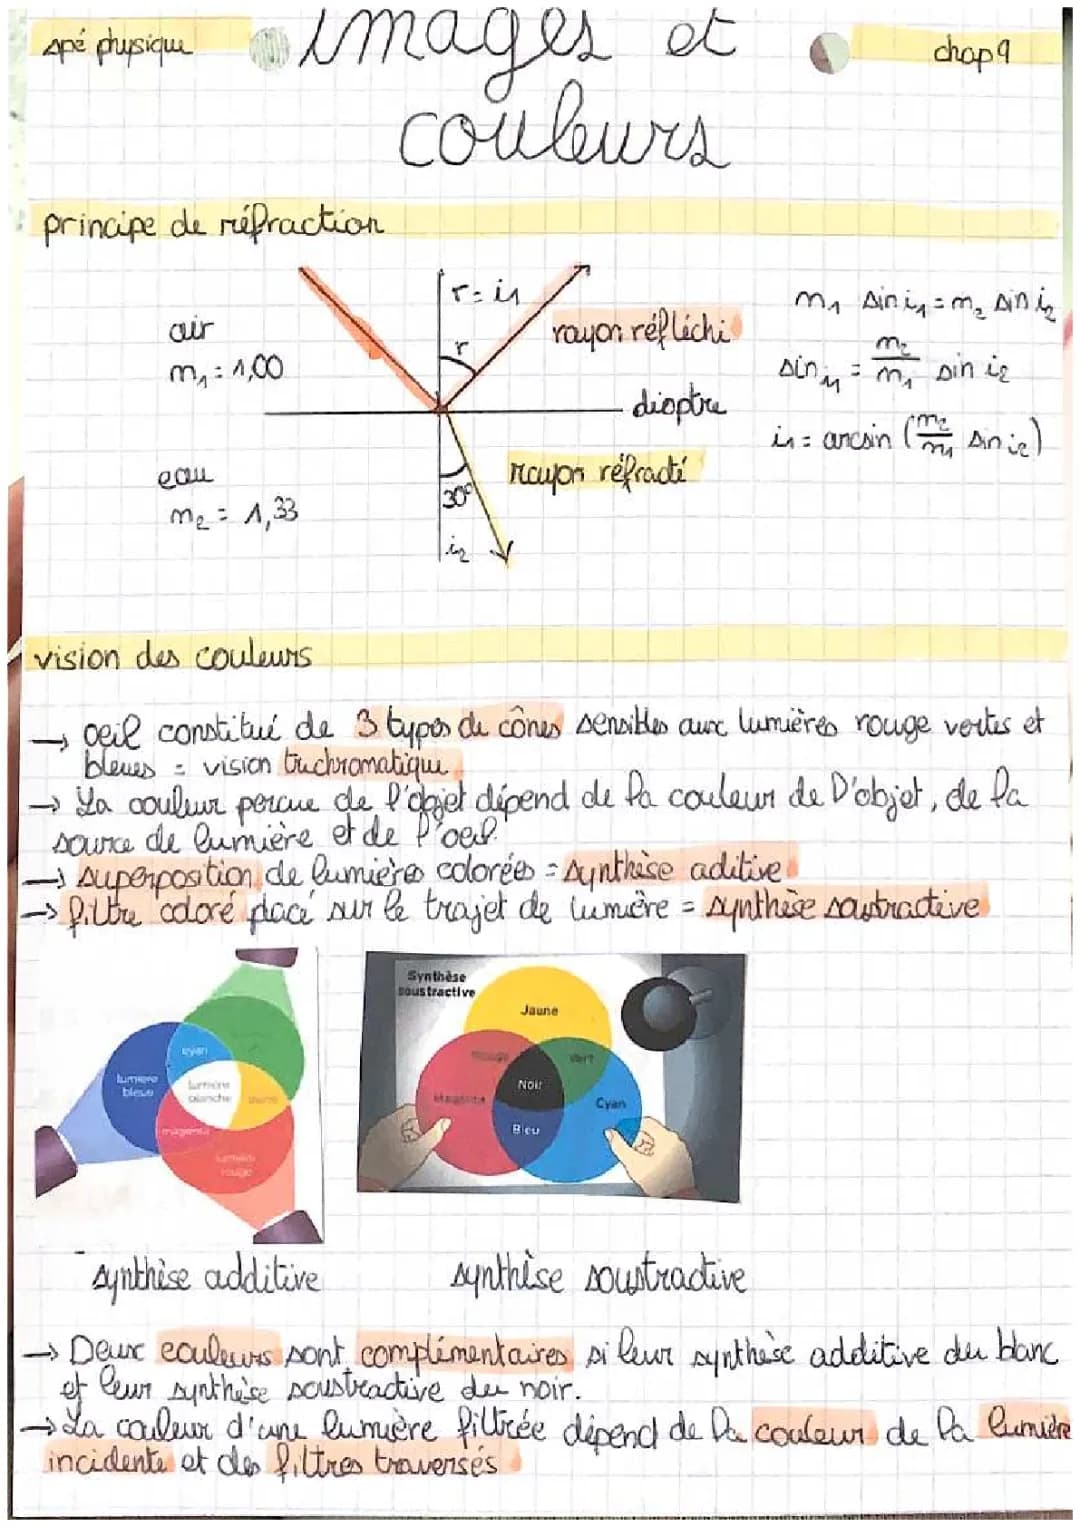 spé physique
images et
chap 9
couleurs
principe de réfraction
r = i1
air
n1 = 1,00
r
rayon réfléchi
n1 sin i1 = n2 sin i2
sin i1 = n2/n1 sin i2
dioptre
i1 = arcsin (n2/n1 sin i2)
eau
n2 = 1,33
30°
rayon réfracté
i2
vision des couleurs
→ oeil constitué de 3 types de cônes sensibles aux lumières rouge vertes et
bleues = vision trichromatique
→ La couleur percue de l'objet dépend de la couleur de l'objet, de la
source de lumière et de l'oeil.
→ superposition de lumières colorées = synthèse aditive
→ filtre coloré placé sur le trajet de lumière = synthèse soustractive
cyan
lumière
bleue
lumière
blanche
jaune
magenta
lumière
rouge
Synthèse
soustractive
Jaune
Rouge
Vert
Noir
Magenta
Cyan
Bleu
synthèse additive
synthèse soustractive
→ Deux couleurs sont complémentaires si leur synthèse additive du blanc
et leur synthèse soustractive du noir.
→ La couleur d'une lumière filtrée dépend de la couleur de la lumière
incidente et des filtres traversés